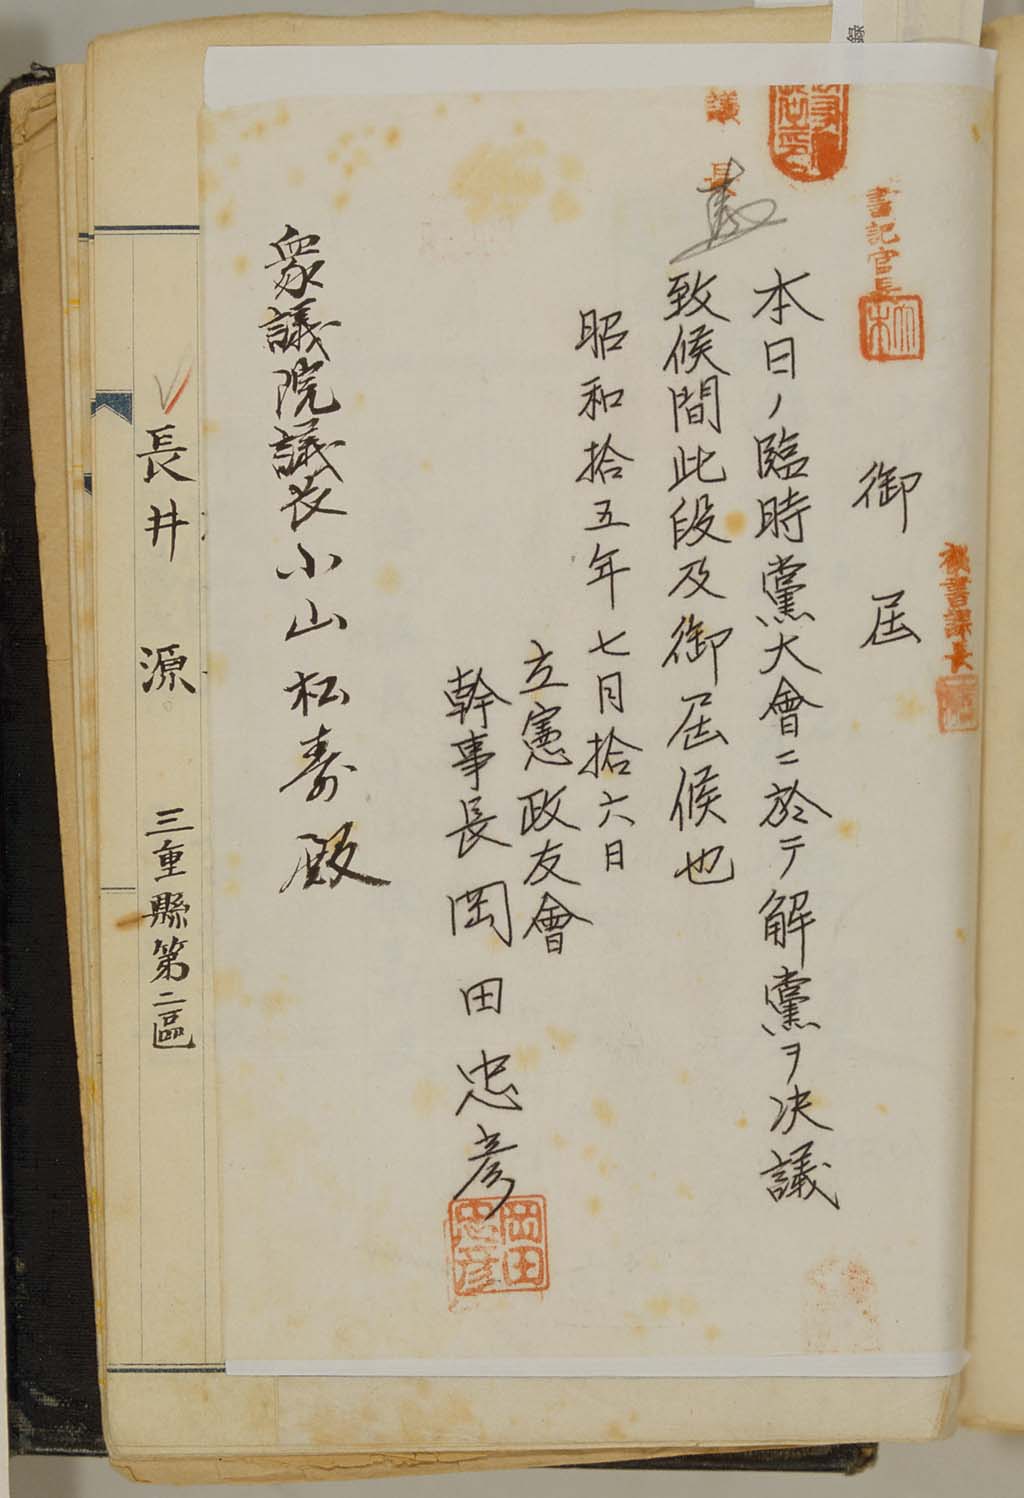 録
秘書課長
書記官長
御届
本日ノ臨時黨大會ニ於テ解黨ヲ決議
議長
致候間此段及御届候也
昭和拾五年七月拾六日
立憲政友會
幹事長岡田忠彦
岡田忠彦
衆議院議長小山松壽殿
長井源 三重縣第二區